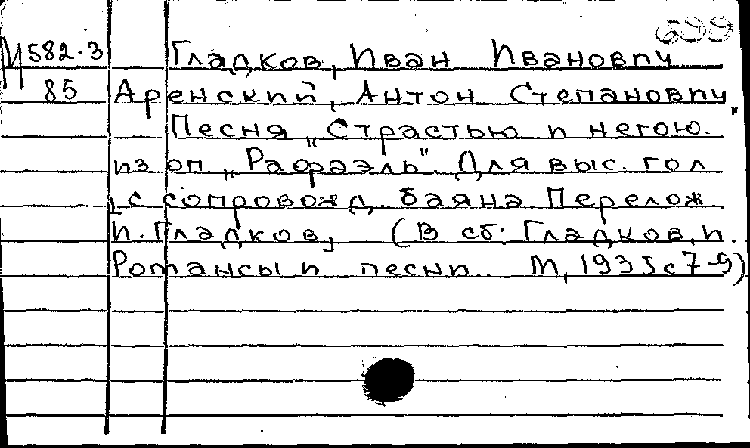 699
М582-3 Гладков, Иван Иванович
85 Аренский, Антон Степанович
Песня „Страстью и негою."
из оп „Рафаэль". Для выс. гол
[с сопровожд. баяна. Перелож
И. Гладков] (В сб: Гладков, И.
Романсы и песни. М, 1935 с 7-9)